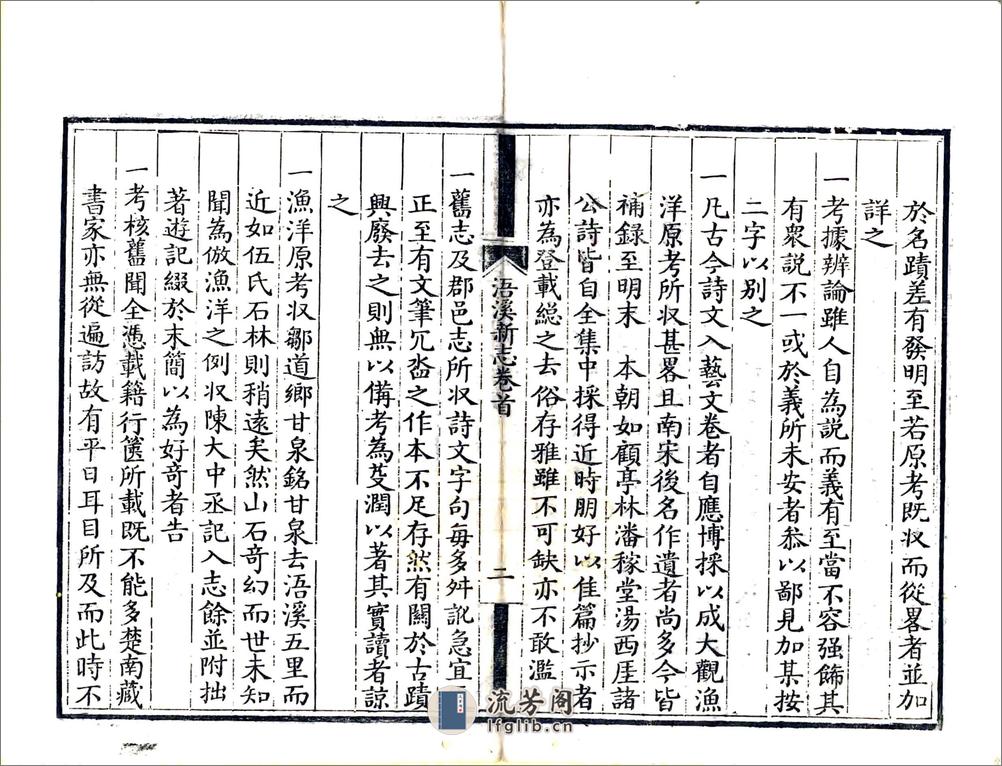 於名蹟差有發明至若原考既收而從畧者並加
詳之
一考據辨論雖人自為說而義有至當不容强飾其
有衆說不一或於義所未安者叅以鄙見加某按
二字以別之
一凡古今詩文入藝文卷者自應博採以成大觀漁
洋原考所収甚畧且南宋後名作遺者尚多今皆
補錄至明末 本朝如顧亭林潘稼堂湯西厓諸
公詩皆自全集中採得近時朋好以佳篇抄示者
亦為登載緫之去俗存雅雖不可缺亦不敢濫
浯溪新志卷首
二
一舊志及郡邑志所収詩文字句每多舛訛急宜
正至有文筆冗沓之作本不足存然有關於古蹟
興廢去之則無以備考為芟潤以著其實讀者諒
之
一漁洋原考収鄒道鄉甘泉銘甘泉去浯溪五里而
近如伍氏石林則稍遠矣然山石奇幻而世未知
聞為倣漁洋之例収陳大中丞記入志餘並附拙
著遊記綴於末簡以為好奇者告
一考核舊聞全憑載籍行篋所載既不能多楚南藏
書家亦無從遍訪故有平日耳目所及而此時不
流芳阁
lfglib.cn